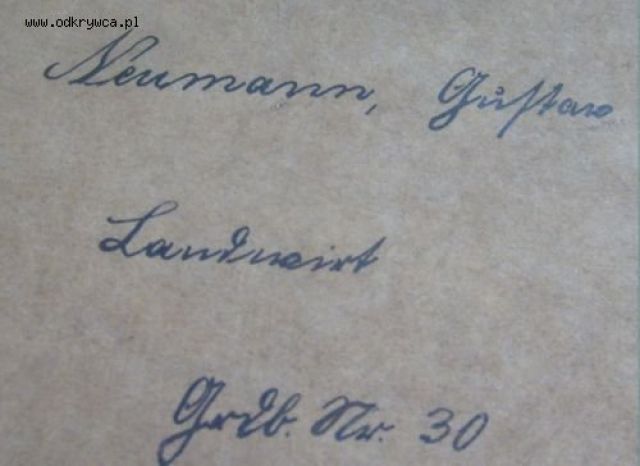 www.odkrywca.pl
Neumann, Gustav
Landwirt
Grdb. Nr. 30